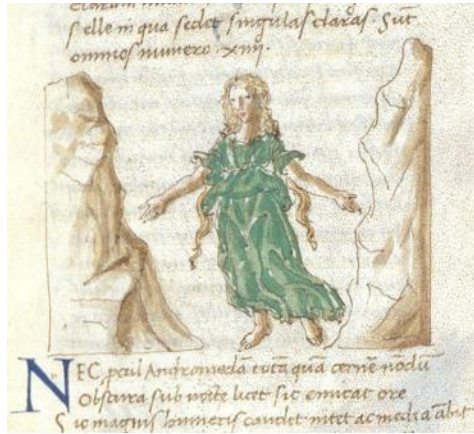 s elle in qua sedet singulas claras. Sūt
omnes numero .xiii.
NEC pcul Andromedā totā quā cernē nōdū
Obscura sub nocte licet sic emicat ore
Sic magnis humeris candet nitet ac media ābit